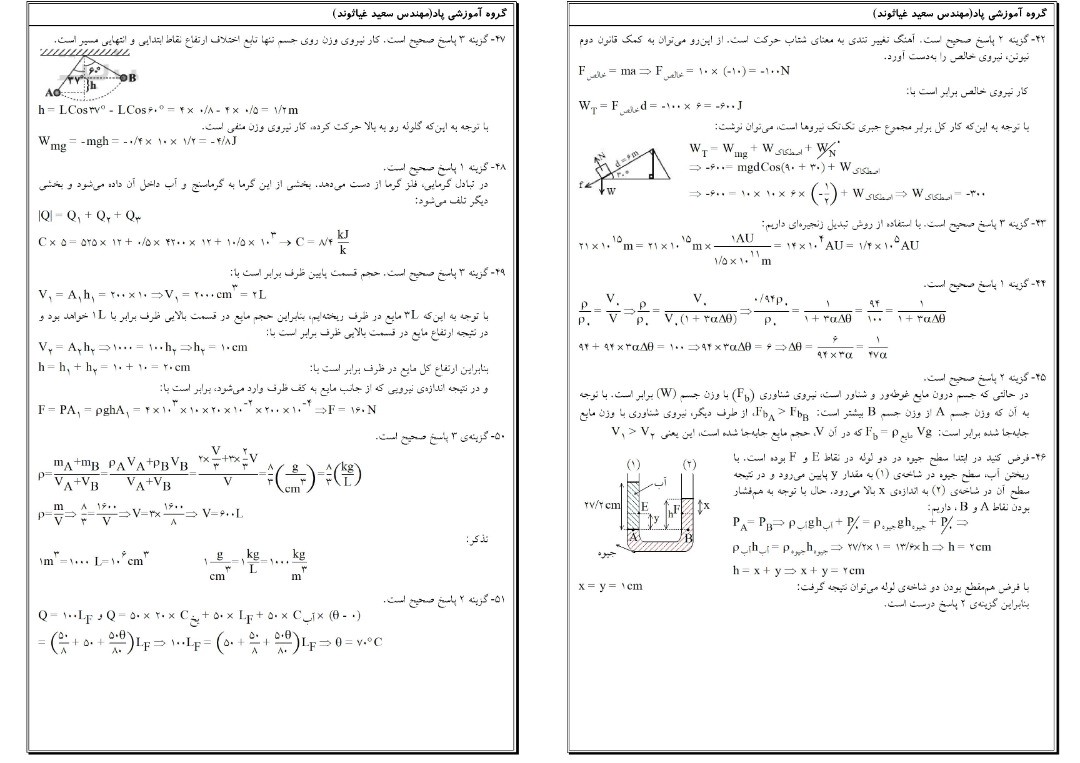 گروه آموزشی پاد(مهندس سعید غیاثوند)
۴۲- گزینه ۲ پاسخ صحیح است. آهنگ تغییر تندی به معنای شتاب حرکت است. از این‌رو می‌توان به کمک قانون دوم
نیوتن، نیروی خالص را به‌دست آورد.
F خالص = ma ⇒ F خالص = ۱۰ × (-۱۰) = -۱۰۰N
کار نیروی خالص برابر است با:
W_T = F خالص d = -۱۰۰ × ۶ = -۶۰۰J
با توجه به این‌که کار کل برابر مجموع جبری تک‌تک نیروها است، می‌توان نوشت:
W_T = W_mg + W اصطکاک + W_N
⇒ -۶۰۰ = mgdCos(۹۰ + ۳۰) + W اصطکاک
⇒ -۶۰۰ = ۱۰ × ۱۰ × ۶ × (-۱/۲) + W اصطکاک ⇒ W اصطکاک = -۳۰۰
N d = ۶m ۳۰° f W
۴۳- گزینه ۳ پاسخ صحیح است. با استفاده از روش تبدیل زنجیره‌ای داریم:
۲۱×۱۰^۱۵ m = ۲۱×۱۰^۱۵ m × ۱AU / ۱/۵×۱۰^۱۱ m = ۱۴×۱۰^۴ AU = ۱/۴×۱۰^۵ AU
۴۴- گزینه ۱ پاسخ صحیح است.
ρ/ρ۰ = V۰/V ⇒ ρ/ρ۰ = V۰/V۰(۱+۳αΔθ) ⇒ ۰/۹۴ρ۰/ρ۰ = ۱/(۱+۳αΔθ) ⇒ ۹۴/۱۰۰ = ۱/(۱+۳αΔθ)
۹۴ + ۹۴×۳αΔθ = ۱۰۰ ⇒ ۹۴×۳αΔθ = ۶ ⇒ Δθ = ۶/(۹۴×۳α) = ۱/۴۷α
۴۵- گزینه ۲ پاسخ صحیح است.
در حالتی که جسم درون مایع غوطه‌ور و شناور است، نیروی شناوری (F_b) با وزن جسم (W) برابر است. با توجه
به آن که وزن جسم A از وزن جسم B بیشتر است: F_bA > F_bB، از طرف دیگر، نیروی شناوری با وزن مایع
جابه‌جا شده برابر است: F_b = ρ مایع Vg که در آن V، حجم مایع جابه‌جا شده است، این یعنی V۱ > V۲
۴۶- فرض کنید در ابتدا سطح جیوه در دو لوله در نقاط E و F بوده است. با
ریختن آب، سطح جیوه در شاخه‌ی (۱) به مقدار y پایین می‌رود و در نتیجه
سطح آن در شاخه‌ی (۲) به اندازه‌ی x بالا می‌رود. حال با توجه به هم‌فشار
بودن نقاط A و B ، داریم:
P_A = P_B ⇒ ρ آب gh آب + P۰ = ρ جیوه gh جیوه + P۰ ⇒
ρ آب h آب = ρ جیوه h جیوه ⇒ ۲۷/۲×۱ = ۱۳/۶×h ⇒ h = ۲cm
h = x + y ⇒ x + y = ۲cm
(۱) (۲) آب ۲۷/۲cm E F h x y A B جیوه
با فرض هم‌مقطع بودن دو شاخه‌ی لوله می‌توان نتیجه گرفت: x = y = ۱cm
بنابراین گزینه‌ی ۲ پاسخ درست است.
گروه آموزشی پاد(مهندس سعید غیاثوند)
۴۷- گزینه ۳ پاسخ صحیح است. کار نیروی وزن روی جسم تنها تابع اختلاف ارتفاع نقاط ابتدایی و انتهایی مسیر است.
۶۰° ۳۷° h A B
h = LCos۳۷° - LCos۶۰° = ۴ × ۰/۸ - ۴ × ۰/۵ = ۱/۲m
با توجه به این‌که گلوله رو به بالا حرکت کرده، کار نیروی وزن منفی است.
W_mg = -mgh = -۰/۴ × ۱۰ × ۱/۲ = -۴/۸J
۴۸- گزینه ۱ پاسخ صحیح است.
در تبادل گرمایی، فلز گرما از دست می‌دهد. بخشی از این گرما به گرماسنج و آب داخل آن داده می‌شود و بخشی
دیگر تلف می‌شود:
|Q| = Q۱ + Q۲ + Q۳
C × ۵ = ۵۲۵ × ۱۲ + ۰/۵ × ۴۲۰۰ × ۱۲ + ۱۰/۵ × ۱۰^۳ → C = ۸/۴ kJ/k
۴۹- گزینه ۳ پاسخ صحیح است. حجم قسمت پایین ظرف برابر است با:
V۱ = A۱h۱ = ۲۰۰×۱۰ ⇒ V۱ = ۲۰۰۰cm^۳ = ۲L
با توجه به این‌که ۳L مایع در ظرف ریخته‌ایم، بنابراین حجم مایع در قسمت بالایی ظرف برابر با ۱L خواهد بود و
در نتیجه ارتفاع مایع در قسمت بالایی ظرف برابر است با:
V۲ = A۲h۲ ⇒ ۱۰۰۰ = ۱۰۰h۲ ⇒ h۲ = ۱۰cm
بنابراین ارتفاع کل مایع در ظرف برابر است با: h = h۱ + h۲ = ۱۰ + ۱۰ = ۲۰cm
و در نتیجه اندازه‌ی نیرویی که از جانب مایع به کف ظرف وارد می‌شود، برابر است با:
F = PA۱ = ρghA۱ = ۴×۱۰^۳×۱۰×۲۰×۱۰^-۲×۲۰۰×۱۰^-۴ ⇒ F = ۱۶۰N
۵۰- گزینه‌ی ۳ پاسخ صحیح است.
ρ = (m_A+m_B)/(V_A+V_B) = (ρ_A V_A+ρ_B V_B)/(V_A+V_B) = (۲×V/۳+۳×۲/۳V)/V = ۸/۳(g/cm^۳) = ۸/۳(kg/L)
ρ = m/V ⇒ ۸/۳ = ۱۶۰۰/V ⇒ V = ۳×۱۶۰۰/۸ ⇒ V = ۶۰۰L
تذکر:
۱m^۳ = ۱۰۰۰ L = ۱۰^۶ cm^۳ ۱ g/cm^۳ = ۱ kg/L = ۱۰۰۰ kg/m^۳
۵۱- گزینه ۲ پاسخ صحیح است.
Q = ۱۰۰L_F و Q = ۵۰ × ۲۰ × C یخ + ۵۰ × L_F + ۵۰ × C آب × (θ - ۰)
= (۵۰/۸ + ۵۰ + ۵۰θ/۸۰)L_F ⇒ ۱۰۰L_F = (۵۰ + ۵۰/۸ + ۵۰θ/۸۰)L_F ⇒ θ = ۷۰°C